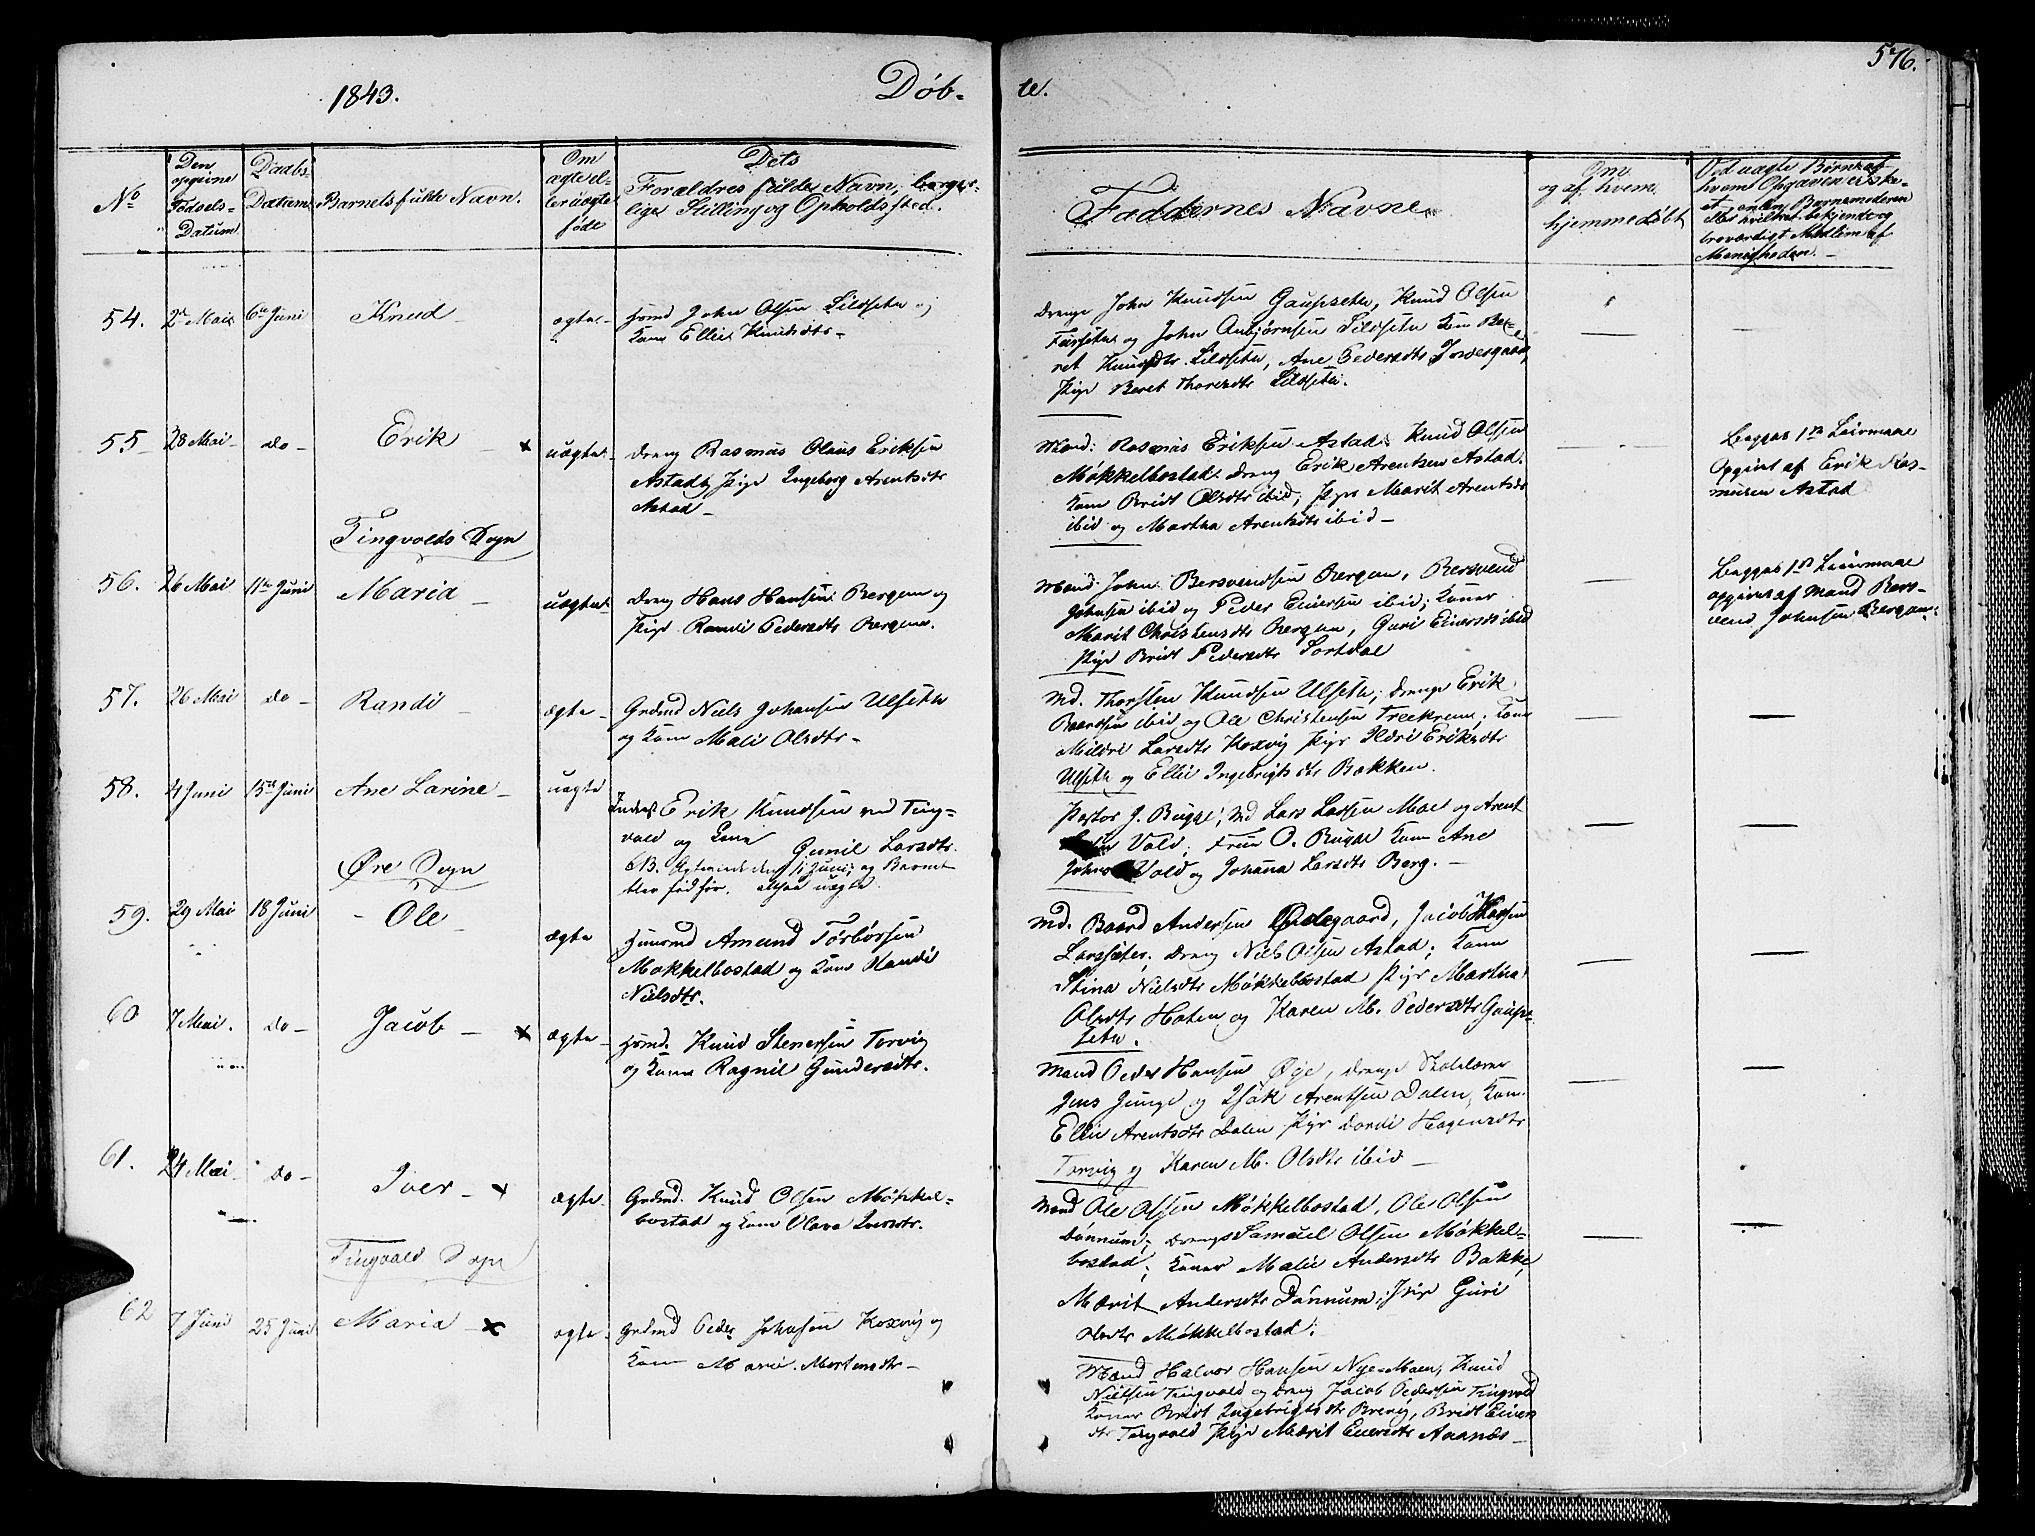 576.
1843.
Døb-
te.
No
Den opgivne Fødsels-Datum
Daabs-Datum
Barnets fulde Navn.
Om ægte el-ler uægte føde
Dets Forældres fulde Navn, borger-lige Stilling og Opholdssted.
Faddernes Navne
Om og af hvem hjemmedøbt
Ved uægte Børn af hvem Opgaven er ske-et
troværdigt Medlem af Menigheden.
54. 2 Mai 6te Juni Knud ægte John Olsen Lilseter og
Kone Knudsdtr
Drenge John Knudsen Gaupseter, Knud Olsen
og John Lilseter Kone Be-
ret Knudsdtr Lilseter, Ane Pedersdtr
Pige Beret Lilseter.
55 28 Mai do Erik x uægte dreng Rasmus Olaus Eriksen
Astad, Pige Ingeborg Arentsdtr
Astad
Mænd: Rasmus Eriksen Astad, Knud Olsen
Møkkelbostad. Dreng Erik Arentsen Astad.
Kone Bridt Olsdtr ibid; Pige Marit Arentsdtr
ibid og Martha Arentsdtr ibid
Begges 1te Leiermaal
Opgivet af Erik Ras-
musen Astad
Tingvolds Sogn
56. 26 Mai 11te Juni Maria uægte dreng Hans Hansen Bergem og
Pige Randi Pedersdtr Bergem.
Mænd: John Bersvendsen Bergem, Bersvend
Johnsen ibid og Peder Eversen ibid; Koner
Marit Christensdtr Bergem, Guri Eversdtr ibid
Pige Bridt Pedersdtr
Begges 1te Leiermaal
opgivet af Mand Bers-
vend Johnsen Bergem
57. 26 Mai do Randi ægte Grdmd Niels Johansen Ulseth
og Kone Mali Olsdtr
Md. Thorsten Knudsen Ulseth; drenge Erik
Baardsen ibid og Ole Christensen Treekrem; Kone
Mildri Larsdtr Koxvig Pige Ildri Eriksdtr
Ulseth og Elli Ingebrigtsdtr Bakken.
58. 4 Juni 15de Juni Ane Larine uægte Erik Knudsen ved Ting-
vold og Kone Gunil Larsdtr.
NB. Juni; og Barnet
blev født før. altsaa uægte.
Pastor J. Bugge; Md Lars Larsen Moe og Arent
Vold; Frue O. Bugge Kone Ane
Vold og Johana Larsdtr Berg.
Øre Sogn
59. 29 Mai 18 Juni Ole ægte Huusmd Amund Torbørsen
Møkkelbostad og Kone Randi
Nielsdtr.
Md. Baard Andersen Ødegaard, Jacob
Larsseter; dreng Niels Olsen Astad; Kone
Stina Nielsdtr Møkkelbostad Pige Martha
Olsdtr Hoten og Karen M. Pedersdtr Gaup-
seter.
60 7 Mai. do Jacob x ægte Hsmd. Knud Stenersen Torvig
og Kone Ragnil Gundersdtr.
Mænd Peder Hansen Øye, drenge Skolelærer
Jens Junge og Isak Arentsen Dalen, Kone
Elli Arentsdtr Dalen Pige Dordi Hagensdtr
Torvig og Karen M. Olsdtr ibid
61. 24 Mai do Iver x ægte Grdmd. Knud Olsen Møkkel-
bostad og Kone Olava Iversdtr.
Mænd Ole Olsen Møkkelbostad, Ole Olsen
Dønnum; drenge Samuel Olsen Møkkel-
bostad; Koner Malie Andersdtr Bakke,
Marit Andersdtr Dønnum; Pige Guri
Olsdtr Møkkelbostad.
Tingvold Sogn
62 7 Juni 25 Juni Maria x ægte Grdmd Peder Johnsen Koxvig og
Kone Marie Mortensdtr
Mænd Halvor Hansen Nye-Moen, Knud
Nielsen Tingvold og dreng Jacob Pedersen Tingvold
Koner Bridt Ingebrigtsdtr Brevig, Bridt Even
dtr Tingvold Pige Marit Eversdtr Aanæs